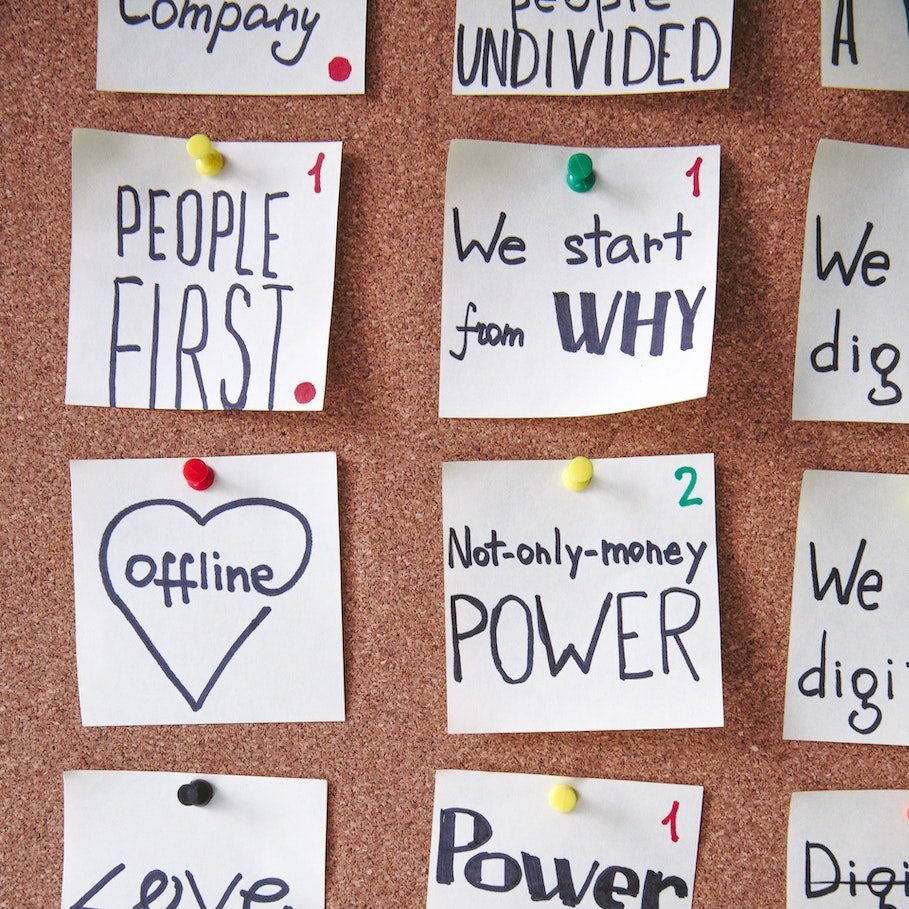 Company
people
UNDIVIDED
A
1
PEOPLE
FIRST
1
We start
from WHY
We
dig
Offline
2
Not-only-money
POWER
We
digi
Love
1
Power
Digi